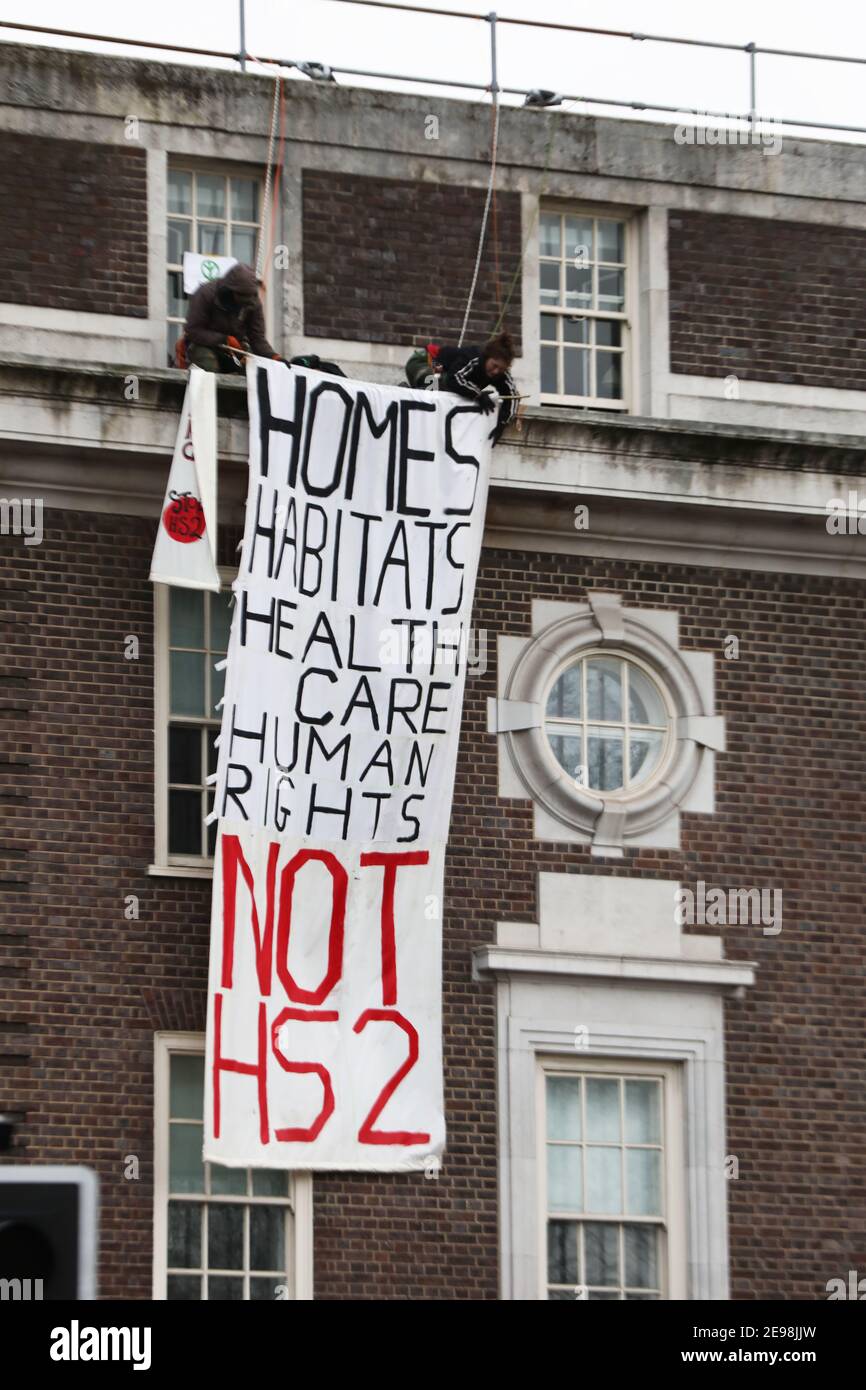 HOMES
HABITATS
HEALTH
CARE
HUMAN
RIGHTS
NOT
HS2
STOP
HS2
alamy
Image ID: 2E98JJW
www.alamy.com